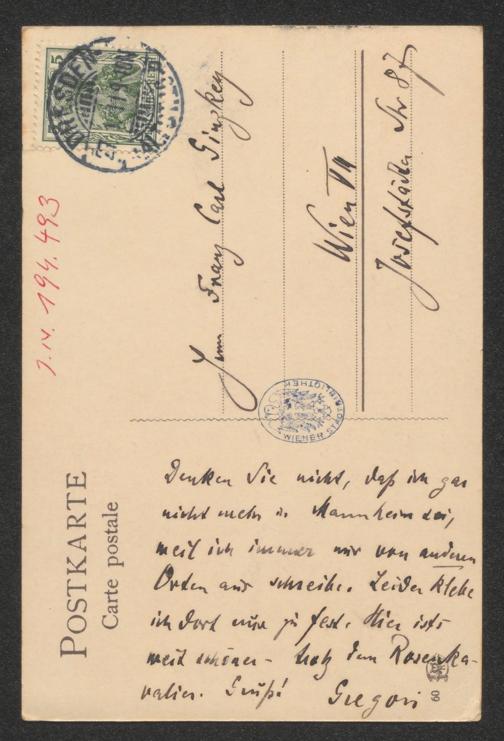 POSTKARTE
Carte postale
5
DRESDEN
Herrn Franz Carl Ginzkey
Wien VIII
Josefstädter Str 87
J.N. 194.493
WIENER STADTBIBLIOTHEK
Denken Sie nicht, daß ich gar
nicht mehr in Mannheim sei,
weil ich immer nur von anderen
Orten aus schreibe. Leider klebe
ich dort nur zu fest. Hier ists
weit schöner - trotz dem Rosenka-
valier. Gruß!
Gregori
60